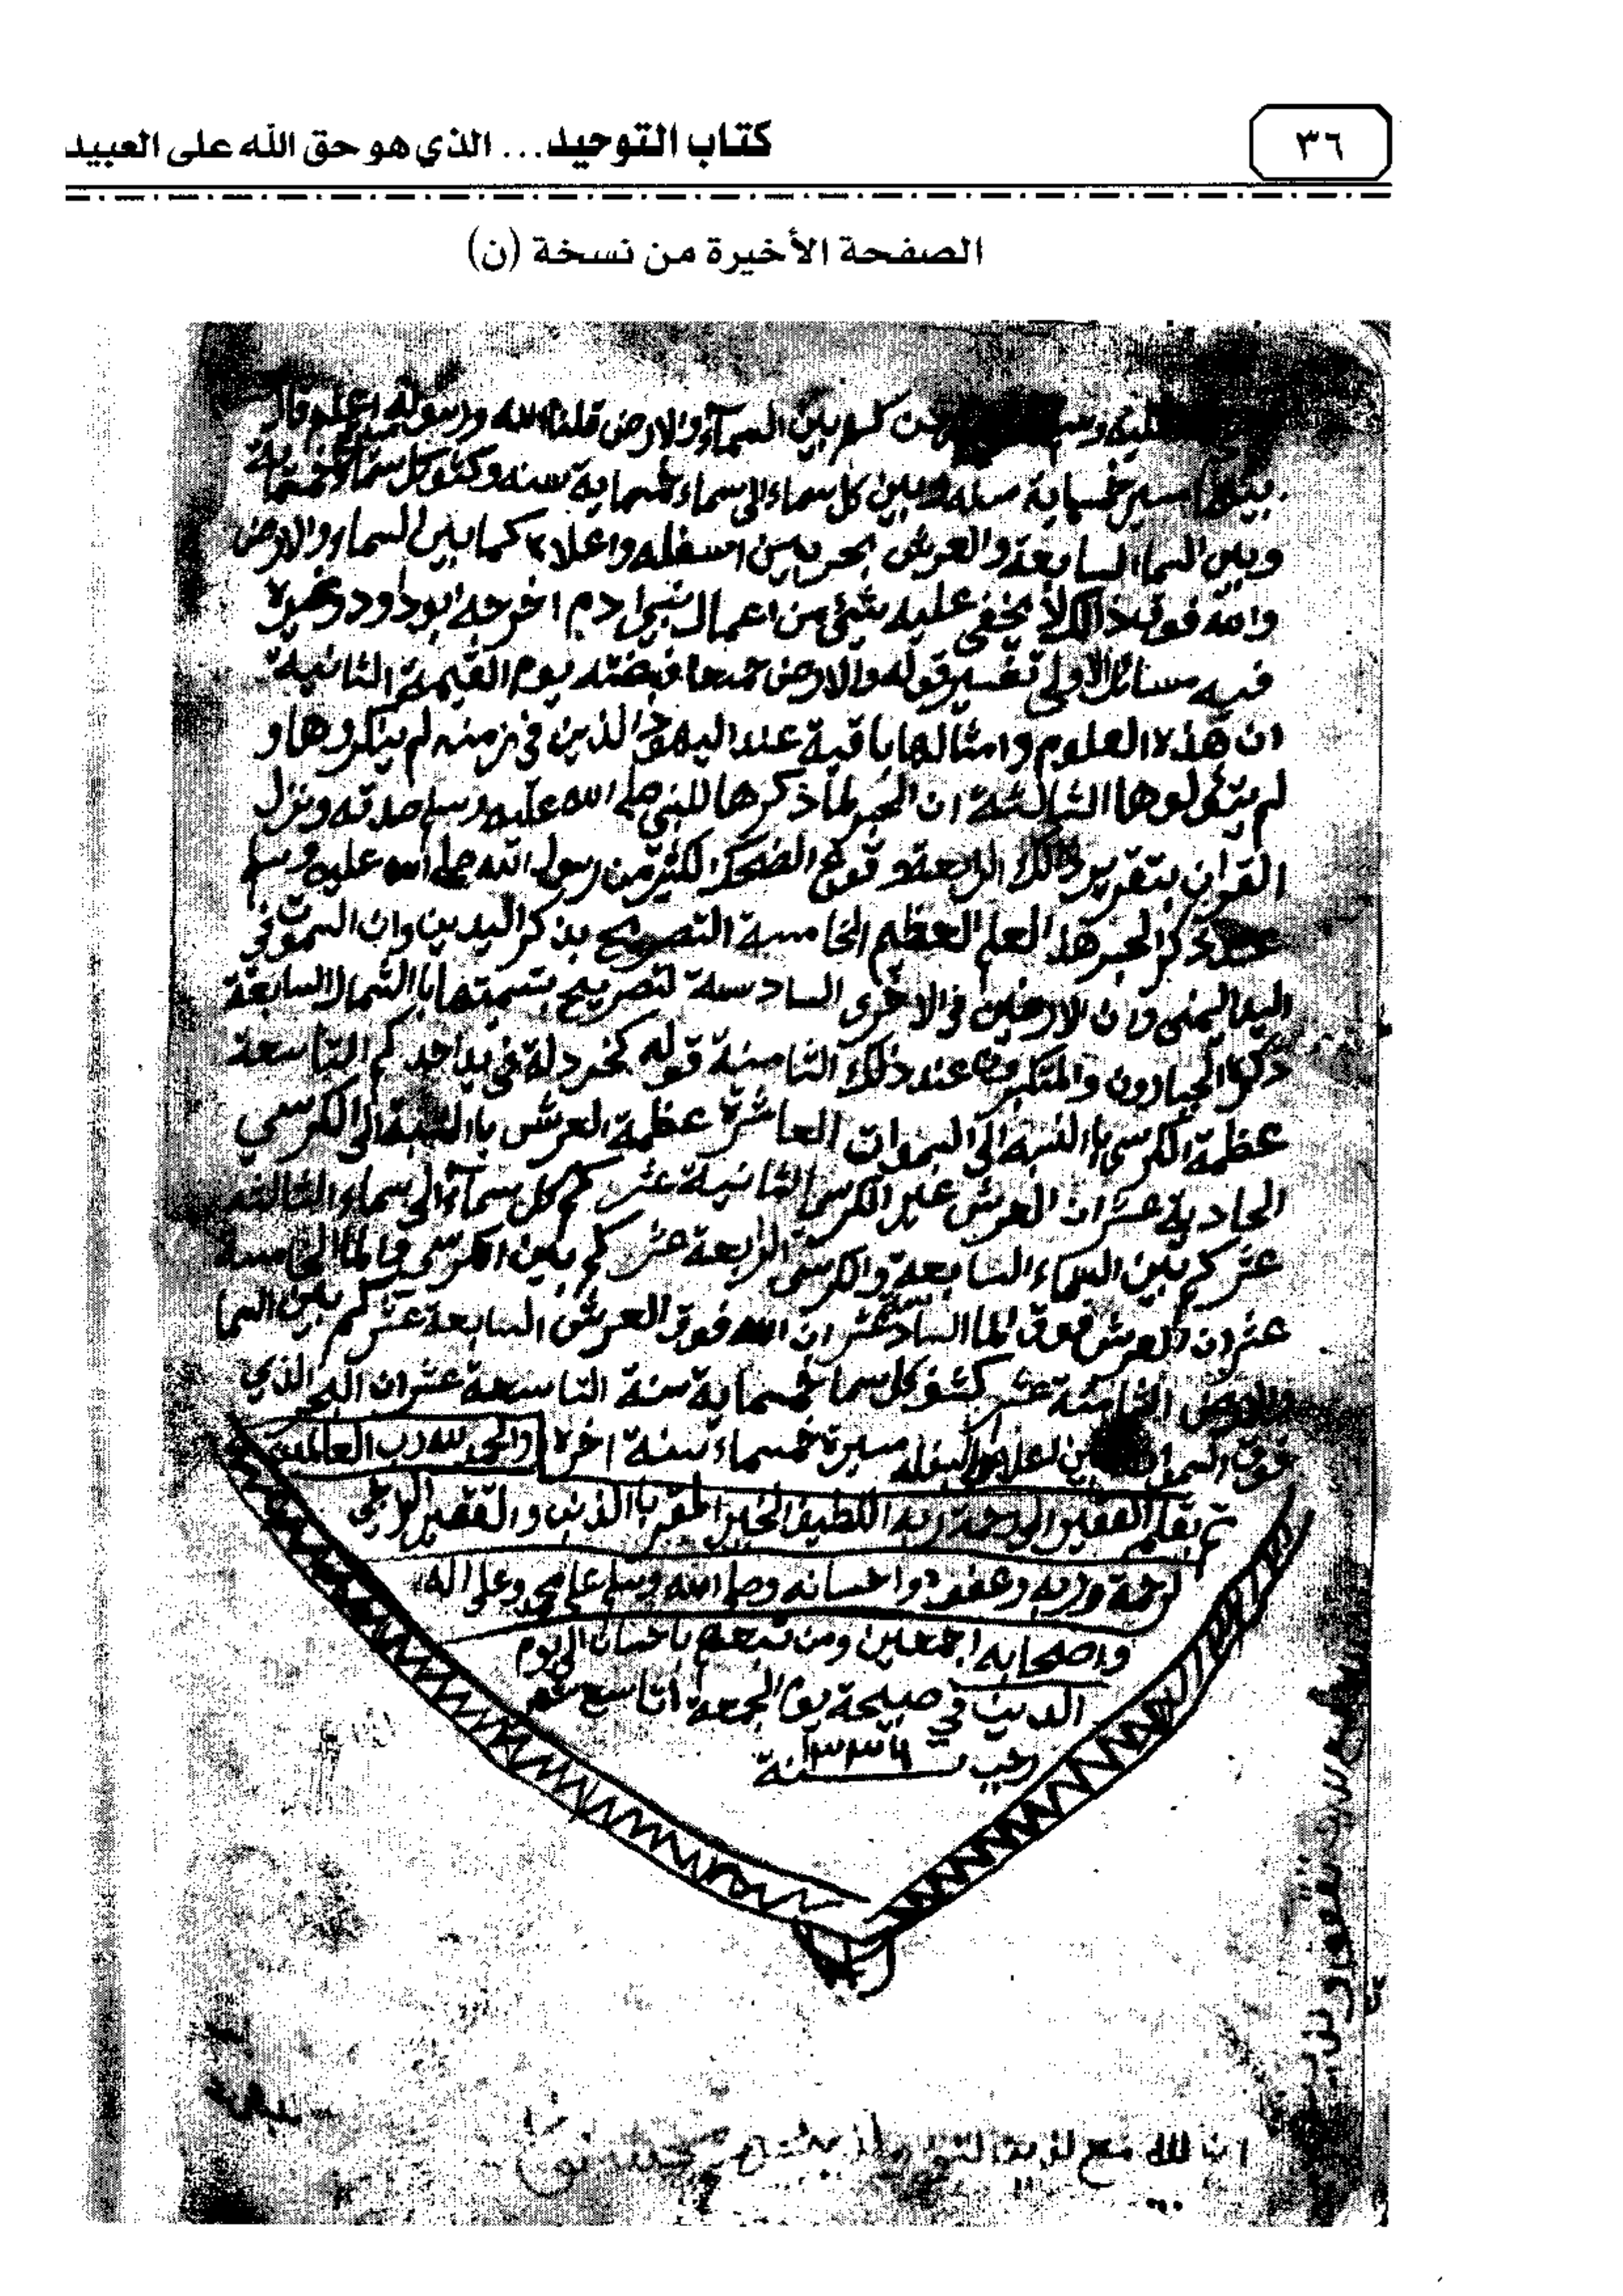 ٣٦
كتاب التوحيد... الذي هو حق الله على العبيد
الصفحة الأخيرة من نسخة (ن)
عليه كم بين السمآء والارض قلنا الله ورسوله اعلم قال
بينهما مسيرة خمسماية سنه وبين كل سماء الى سماء خمسماية سنه وكثف كل سماء خمسماية
وبين السما السابعة والعرش بحر بين اسفله واعلاه كما بين السماء والارض
والله فوق ذالك لا يخفى عليه شيئ من اعمال بني ادم اخرجه ابو داود وغيره
فيه مسائل الاولى تفسير قوله والارض جميعا قبضته يوم القيمة الثانية
ان هذه العلوم وامثالها باقية عند اليهود الذين في زمنه لم ينكروها و
لم يتئولوها الثالثة ان الحبر لما ذكرها للنبي صلى الله عليه وسلم صدقه ونزل
القران بتقرير ذالك الرابعة وقوع الضحك الكثير من رسول الله صلى الله عليه وسلم
عند ذكر الحبر هذا العلم العظيم الخامسة التصريح بذكر اليدين وان السموت في
اليد اليمنى وان الارضين في الاخرى السادسة لتصريح بتسميتها باالشمال السابعة
ذكر الجبارون والمتكبرون عند ذلك الثامنية قوله كخردلة في يد احدكم التاسعة
عظمة الكرسي باالنسبة الى السموات العاشرة عظمة العرش باالنسبة الى الكرسي
الحادية عشر ان العرش غير الكرسي الثانية عشر كم كل سمآء الى سماء الثالثه
عشر كم بين السماء السابعة والكرسي الرابعة عشر كم بين الكرسي والما الخامسة
عشر ان العرش فوق الما السادسة عشر ان الله فوق العرش السابعة عشر كم بين السما
والارض الثامنة عشر كثف كل سما خمسماية سنة التاسعة عشر ان البحر الذي
فوق السموات بين اعلاه واسفله مسيرة خمسماء سنة اخره والحمد لله رب العالمين
تم بقلم الفقير الى رحمة ربه اللطيف الخبير المقر باالذنب والتقصير الراجي
لرحمة وربه وعفوه واحسانه وصلى الله وسلم على محمد وعلى اله
واصحابه اجمعين ومن تبعهم باحسان الى يوم
الدين في صبيحة يوم الجمعة اتاسع شهر
رجب سنة
ان الله مع